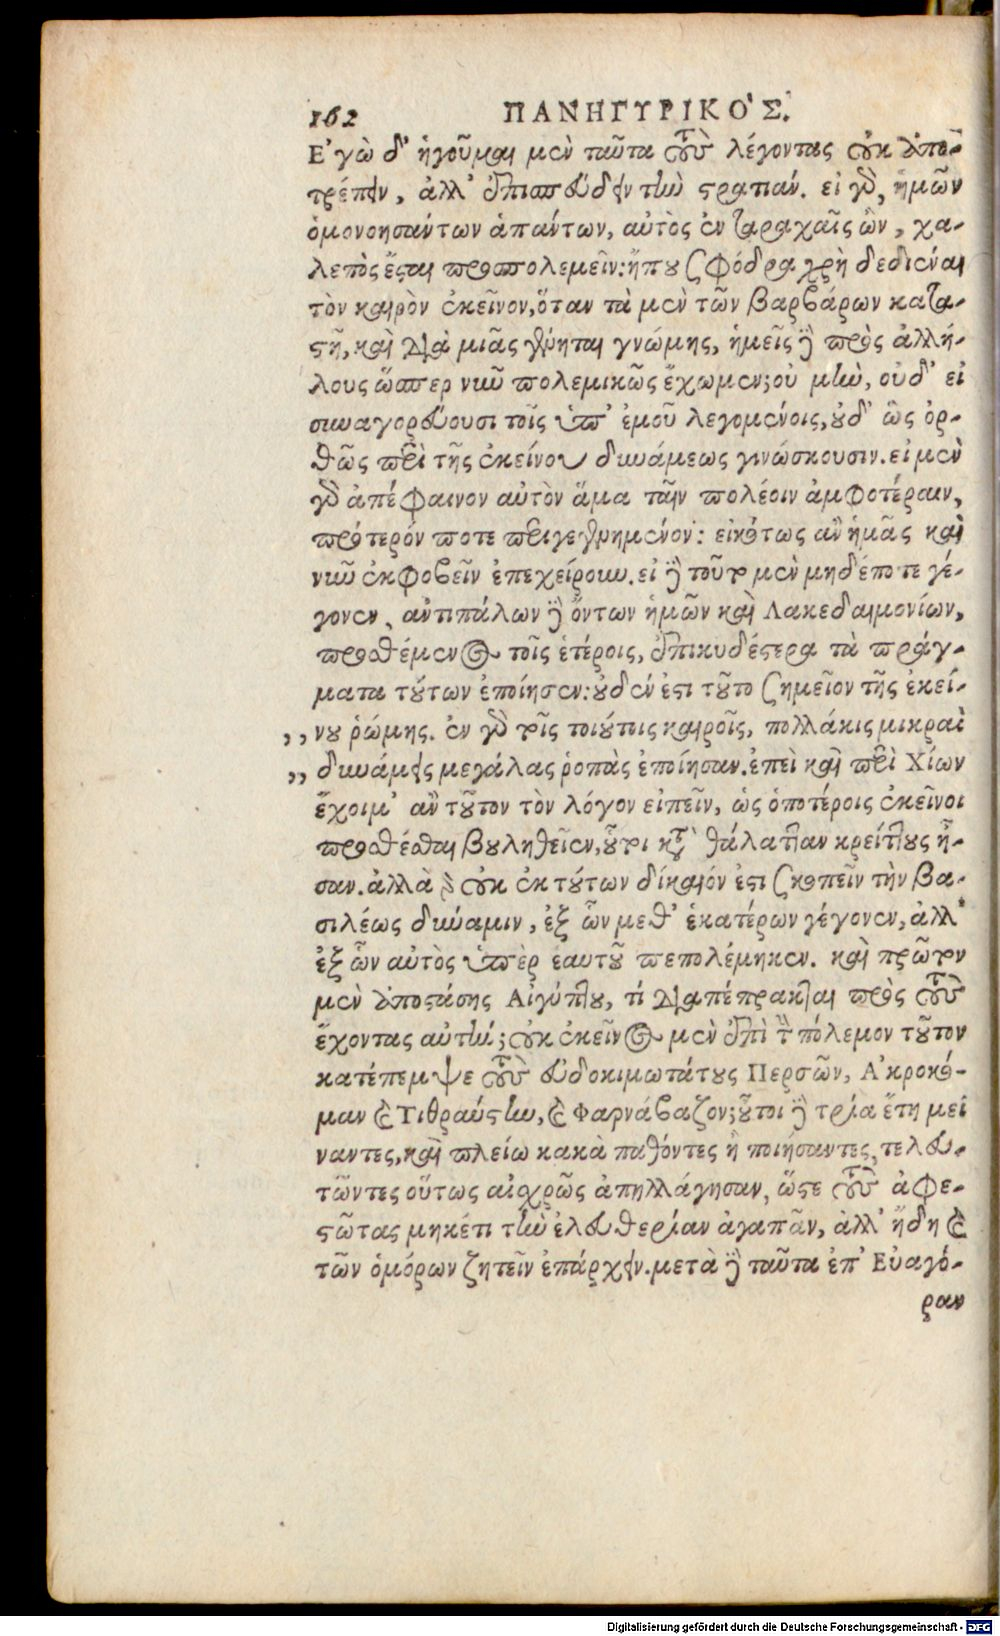 162 ΠΑΝΗΓΥΡΙΚΟ'Σ.
Ε'γὼ δ' ἡγοῦμαι μὲν ταῦτα τοὺς λέγοντας οὐκ ἀπο-
τρέπειν, ἀλλ' ἐπισπεύδειν τὴν στρατιάν. εἰ γὰρ, ἡμῶν
ὁμονοησάντων ἁπάντων, αὐτὸς ἐν ταραχαῖς ὢν, χα-
λεπὸς ἔσται προσπολεμεῖν: ἤπου σφόδρα χρὴ δεδιέναι
τὸν καιρὸν ἐκεῖνον, ὅταν τὰ μὲν τῶν βαρβάρων κατα-
στῇ, καὶ διὰ μιᾶς γένηται γνώμης, ἡμεῖς δὲ πρὸς ἀλλή-
λους ὥσπερ νῦν πολεμικῶς ἔχωμεν; οὐ μὴν, οὐδ' εἰ
συναγορεύουσι τοῖς ὑπ' ἐμοῦ λεγομένοις, οὐδ' ὣς ὀρ-
θῶς περὶ τῆς ἐκείνου δυνάμεως γινώσκουσιν. εἰ μὲν
γὰρ ἀπέφαινον αὐτὸν ἅμα ταῖν πολέοιν ἀμφοτέραιν,
πρότερόν ποτε περιγεγενημένον: εἰκότως ἂν ἡμᾶς καὶ
νῦν ἐκφοβεῖν ἐπεχείρουν. εἰ δὲ τοῦτο μὲν μηδέποτε γέ-
γονεν, ἀντιπάλων δὲ ὄντων ἡμῶν καὶ Λακεδαιμονίων,
προσθέμενος τοῖς ἑτέροις, ἐπικυδέστερα τὰ πράγ-
ματα τούτων ἐποίησεν: οὐδέν ἐστι τοῦτο σημεῖον τῆς ἐκεί-
,, νου ῥώμης. ἐν γὰρ τοῖς τοιούτοις καιροῖς, πολλάκις μικραὶ
,, δυνάμεις μεγάλας ῥοπὰς ἐποίησαν. ἐπεὶ καὶ περὶ Χίων
ἔχοιμ' ἂν τοῦτον τὸν λόγον εἰπεῖν, ὡς ὁποτέροις ἐκεῖνοι
προσθέσθαι βουληθεῖεν, οὗτοι κατὰ θάλατταν κρείττους ἦ-
σαν. ἀλλὰ γὰρ οὐκ ἐκ τούτων δίκαιόν ἐστι σκοπεῖν τὴν βα-
σιλέως δύναμιν, ἐξ ὧν μεθ' ἑκατέρων γέγονεν, ἀλλ'
ἐξ ὧν αὐτὸς ὑπὲρ ἑαυτοῦ πεπολέμηκεν. καὶ πρῶτον
μὲν ἀποστάσης Αἰγύπτου, τί διαπέπρακται πρὸς τοὺς
ἔχοντας αὐτήν; οὐκ ἐκεῖνος μὲν ἐπὶ τὸν πόλεμον τοῦτον
κατέπεμψε τοὺς εὐδοκιμωτάτους Περσῶν, Α'κροκό-
μαν καὶ Τιθραύστην, καὶ Φαρνάβαζον; οὗτοι δὲ τρία ἔτη μεί
ναντες, καὶ πλείω κακὰ παθόντες ἢ ποιήσαντες, τελευ-
τῶντες οὕτως αἰσχρῶς ἀπηλλάγησαν, ὥστε τοὺς ἀφε-
στῶτας μηκέτι τὴν ἐλευθερίαν ἀγαπᾶν, ἀλλ' ἤδη καὶ
τῶν ὁμόρων ζητεῖν ἐπάρχειν. μετὰ δὲ ταῦτα ἐπ' Εὐαγό-
ραν
Digitalisierung gefördert durch die Deutsche Forschungsgemeinschaft - DFG